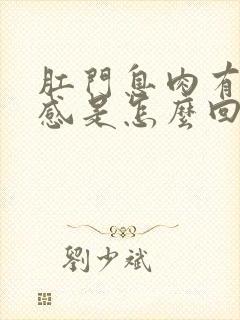 肛門息肉有
感是怎麼回
劉少斌